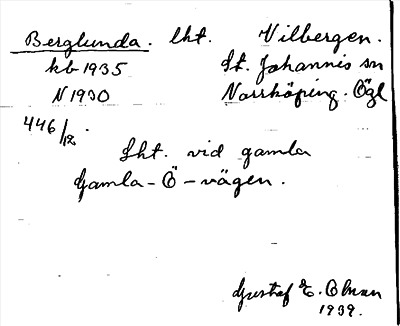 Berglunda. lht. Vilbergen.
kb 1935 St. Johannis sn
N 1930 Norrköping. Ögl
446/12.
Lht. vid gamla
Gamla-Ö-vägen.
Gustaf E. Olman
1939.